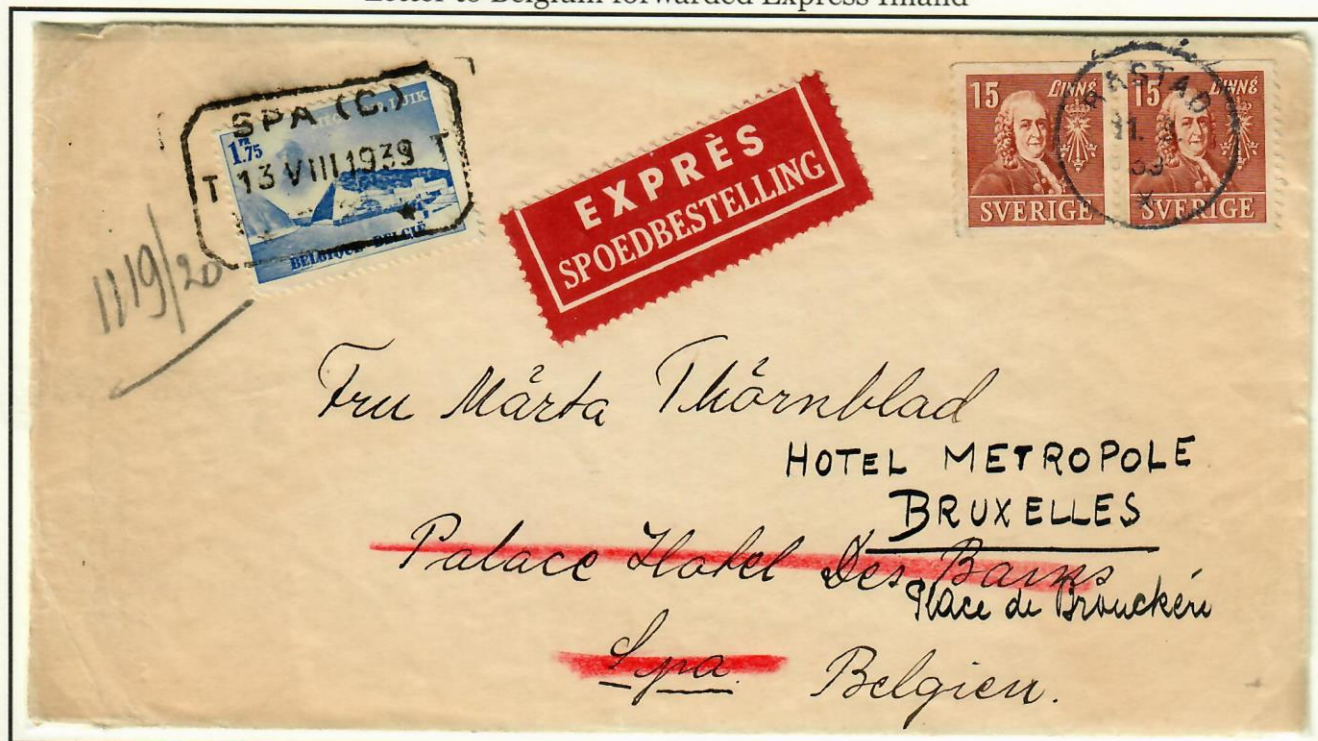 Letter to Belgium forwarded Express Inland
SPA (C.)
T 13 VIII 1939 T
1.75
BELGIQUE-BELGIË
EXPRÈS
SPOEDBESTELLING
15 LINNÉ
SVERIGE
15 LINNÉ
SVERIGE
BÅSTAD
1119/20
Fru Märta Thörnblad
HOTEL METROPOLE
BRUXELLES
Palace Hotel Des Bains
Place de Brouckère
Spa.
Belgien.